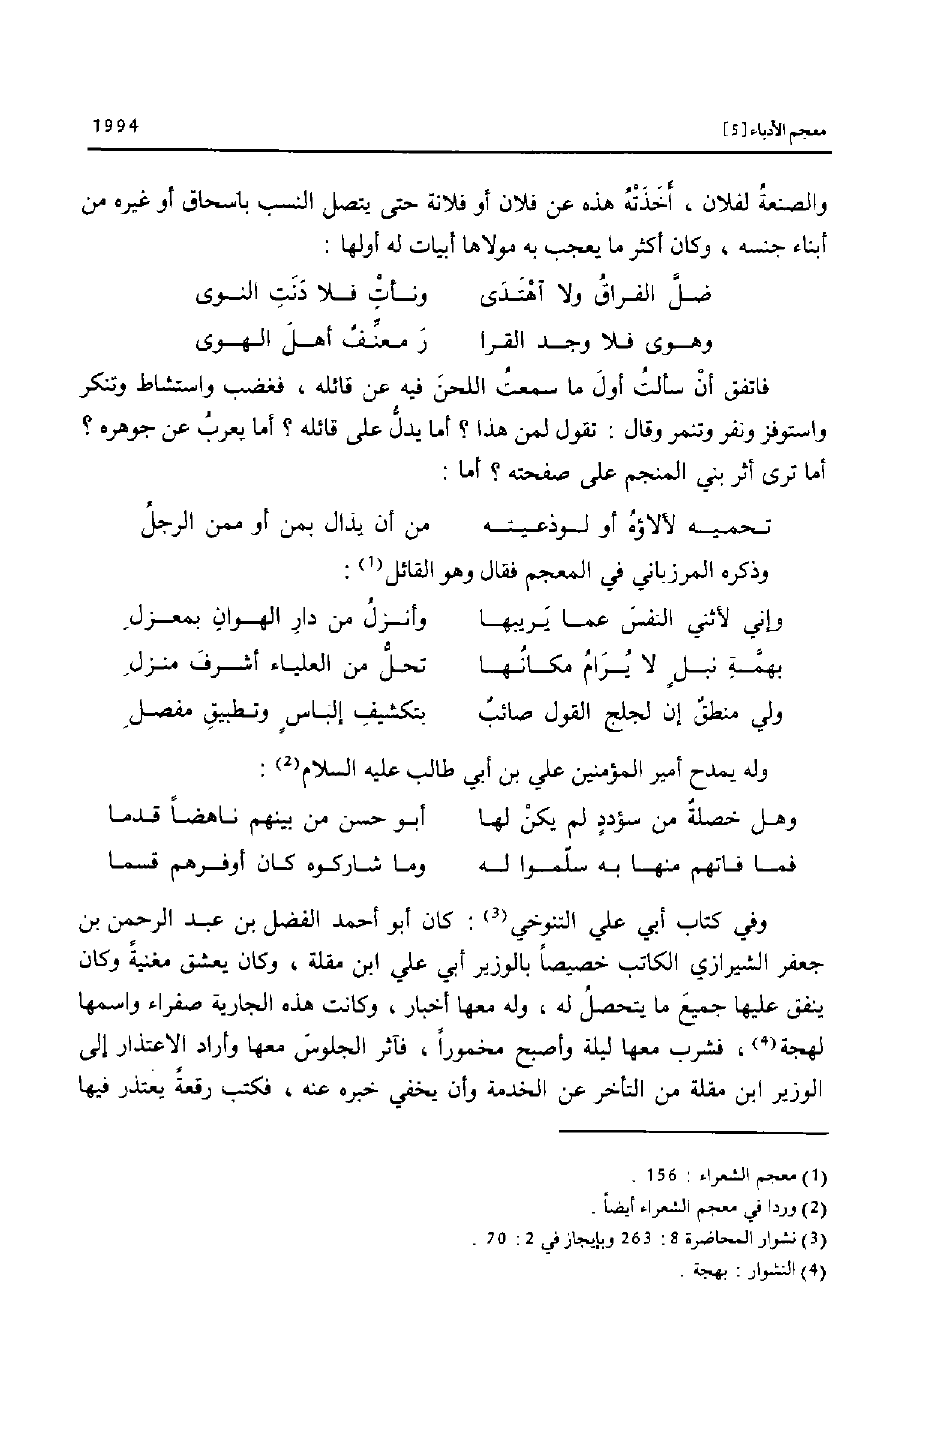 معجم الأدباء [5] 1994
والصنعةُ لفلان ، أَخَذَتْهُ هذه عن فلان أو فلانة حتى يتصل النسب باسحاق أو غيره من
أبناء جنسه ، وكان أكثر ما يعجب به مولاها أبيات له أولها :
ضلَّ الفراقُ ولا آهْتَدَى ونأتْ فلا دَنَتِ النوى
وهوى فلا وجد القرا رَ معنِّفٌ أهلَ الهوى
فاتفق أنْ سألتُ أولَ ما سمعتُ اللحنَ فيه عن قائله ، فغضب واستشاط وتنكر
واستوفز ونفر وتنمر وقال : تقول لمن هذا ؟ أما يدلُّ على قائله ؟ أما يعربُ عن جوهره ؟
أما ترى أثر بني المنجم على صفحته ؟ أما :
تحميه لألاؤهُ أو لوذعيته من أن يذال بمن أو ممن الرجلُ
وذكره المرزباني في المعجم فقال وهو القائل(1) :
وإني لأثني النفسَ عما يَريبها وأنزلُ من دارِ الهوانِ بمعزلِ
بهمَّةِ نبلٍ لا يُرَامُ مكانُها تحلُّ من العلياء أشرفَ منزلِ
ولي منطقٌ إن لجلج القول صائبٌ بتكشيفِ إلباسٍ وتطبيقِ مفصلِ
وله يمدح أمير المؤمنين علي بن أبي طالب عليه السلام(2) :
وهل خصلةٌ من سؤددٍ لم يكنْ لها أبو حسن من بينهم ناهضاً قدما
فما فاتهم منها به سلَّموا له وما شاركوه كان أوفرهم قسما
وفي كتاب أبي علي التنوخي(3) : كان أبو أحمد الفضل بن عبد الرحمن بن
جعفر الشيرازي الكاتب خصيصاً بالوزير أبي علي ابن مقلة ، وكان يعشق مغنيةً وكان
ينفق عليها جميعَ ما يتحصلُ له ، وله معها أخبار ، وكانت هذه الجارية صفراء واسمها
لهجة(4) ، فشرب معها ليلة وأصبح مخموراً ، فآثر الجلوسَ معها وأراد الاعتذار إلى
الوزير ابن مقلة من التأخر عن الخدمة وأن يخفي خبره عنه ، فكتب رقعةً يعتذر فيها
(1) معجم الشعراء : 156 .
(2) وردا في معجم الشعراء أيضاً .
(3) نشوار المحاضرة 8 : 263 وبإيجاز في 2 : 70 .
(4) النشوار : بهجة .